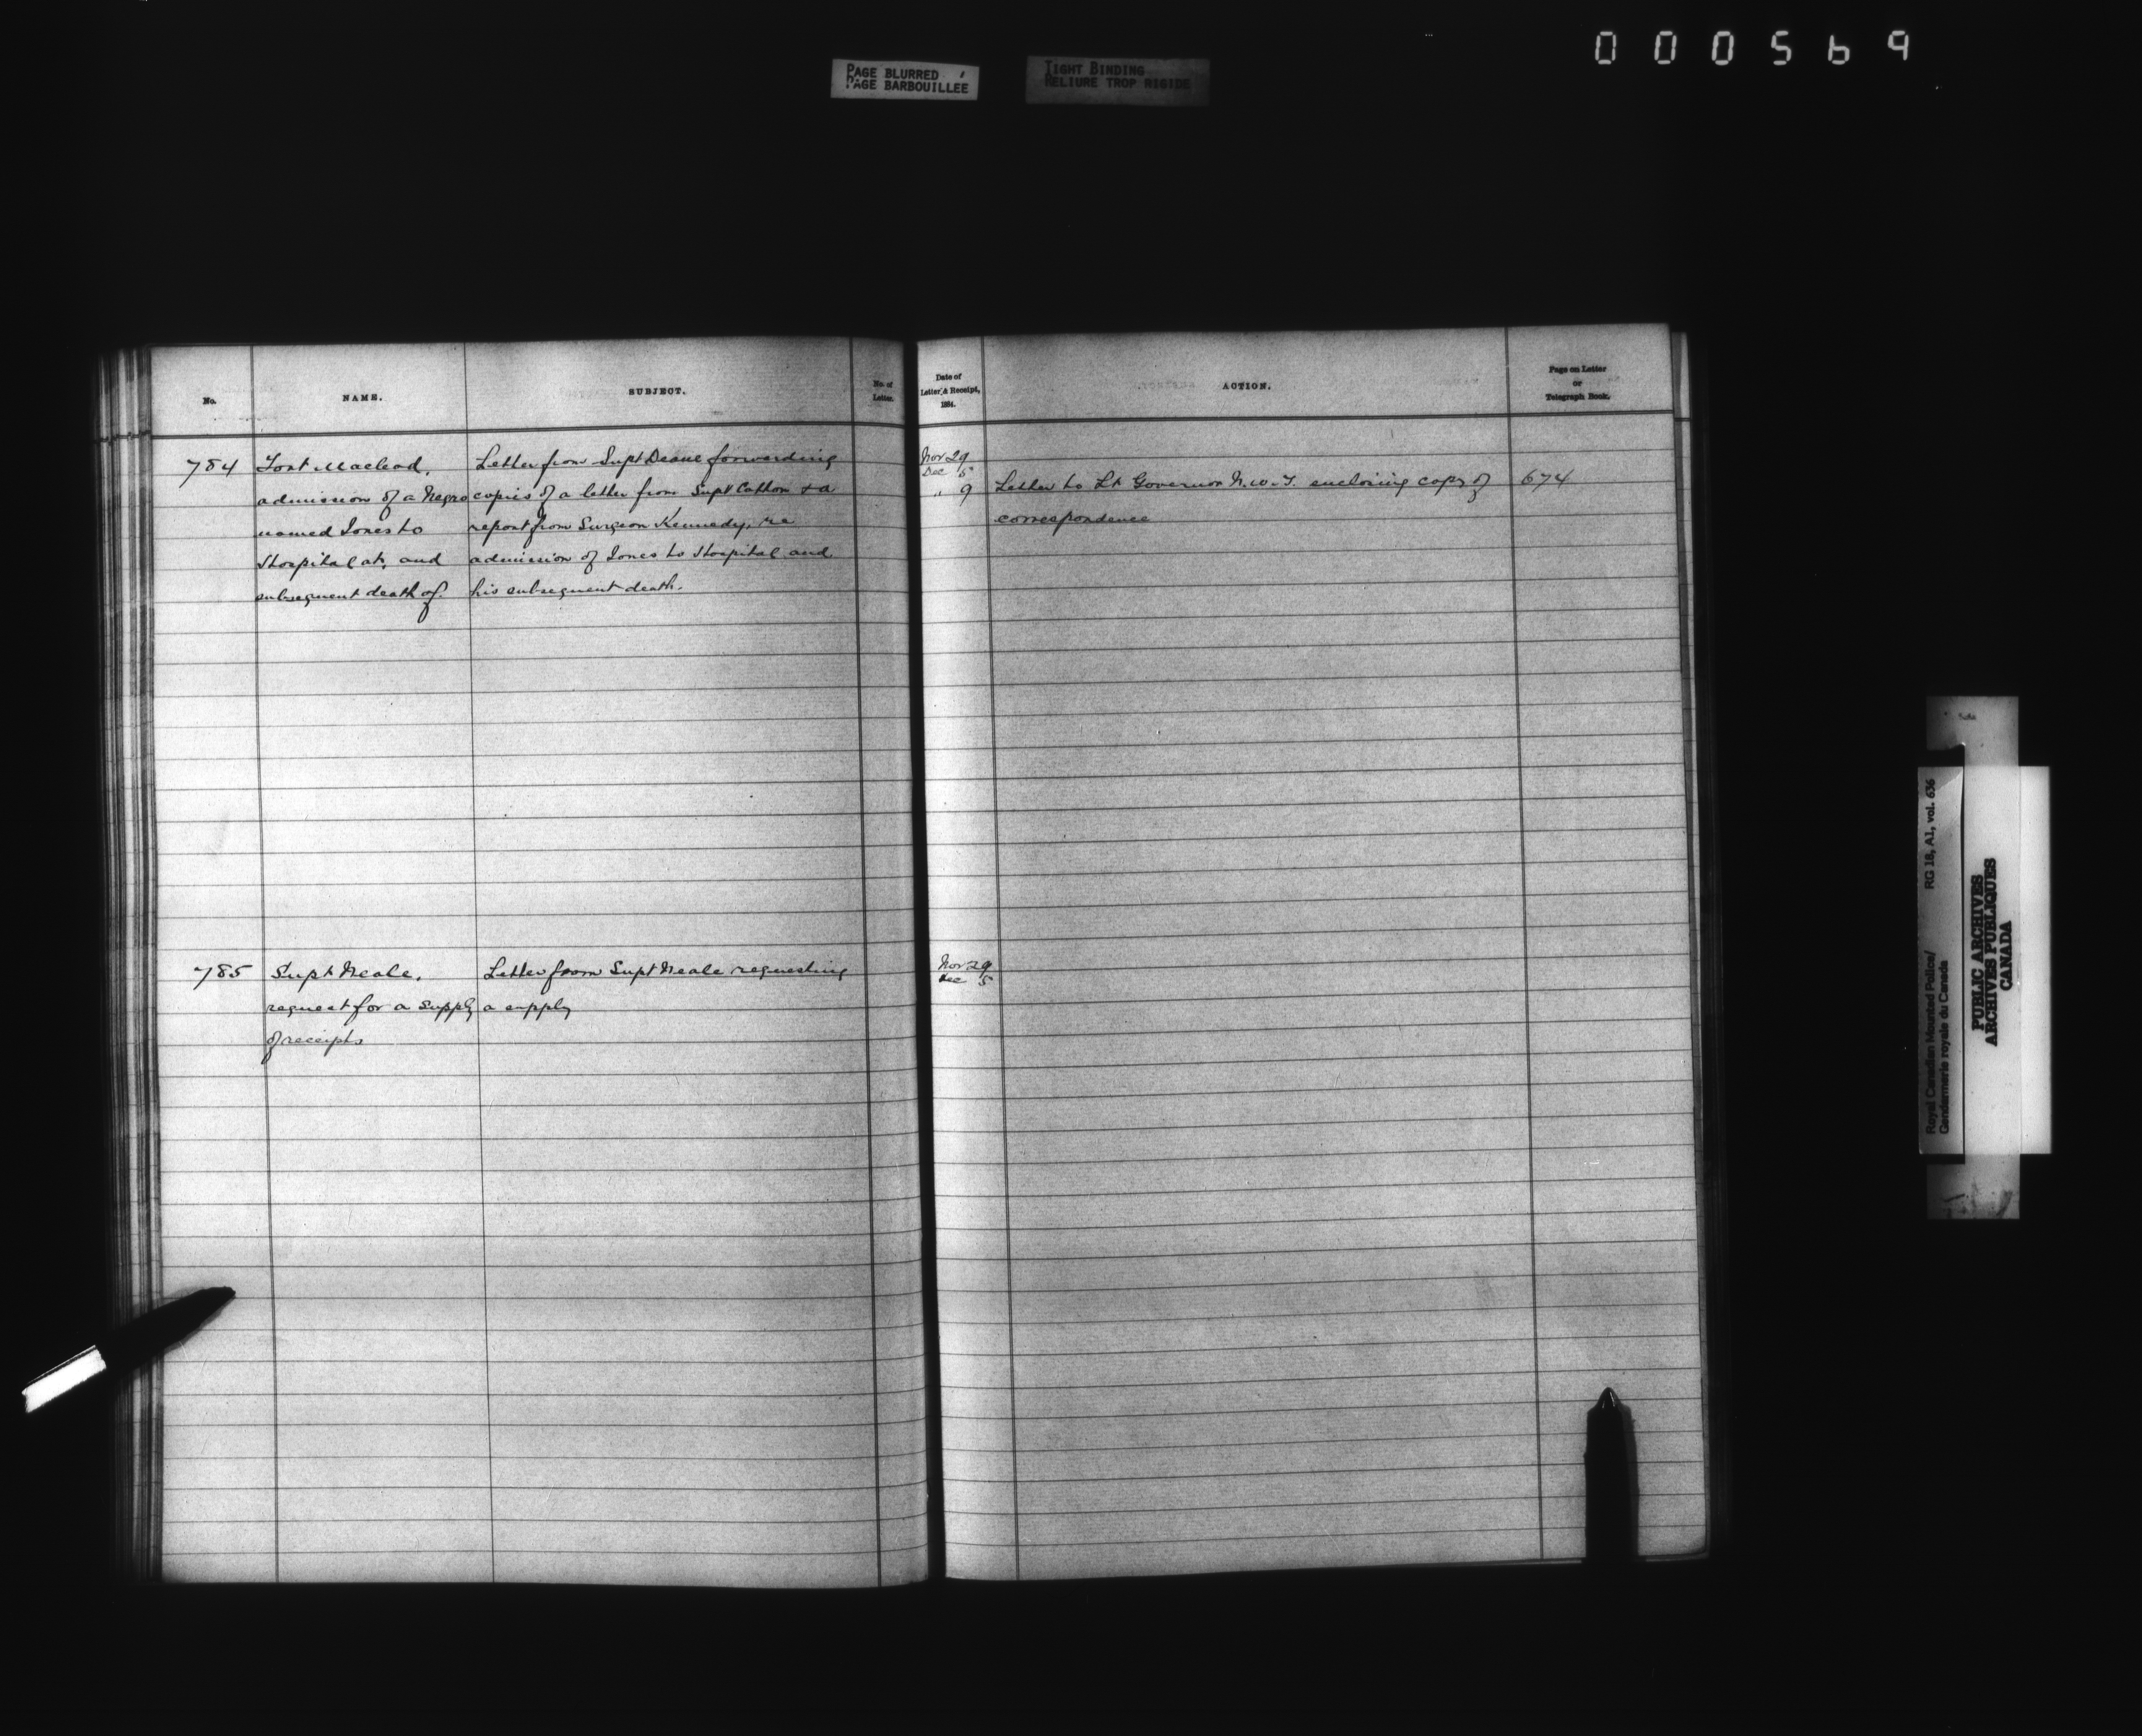 000569
PAGE BLURRED
PAGE BARBOUILLEE
TIGHT BINDING
RELIURE TROP RIGIDE
No.
NAME.
SUBJECT.
No. of
Letter.
Date of
Letter & Receipt,
1884.
ACTION.
Page on Letter
or
Telegraph Book.
784 Fort Macleod. Letter from Supt Deane forwarding Nov 29
Dec 5
admission of a Negro copies of a letter from Supt Cotton & a " 9 Letter to Lt Governor N.W.T. enclosing copy of 674
named Jones to report from Surgeon Kennedy, re correspondence
Hospital at, and admission of Jones to Hospital and
subsequent death of. his subsequent death.
785 Supt Neale. Letter from Supt Neale requesting Nov 29
Dec 5
request for a supply a supply
of receipts
Royal Canadian Mounted Police/ RG 18, A1, vol. 636
Gendarmerie royale du Canada
PUBLIC ARCHIVES
ARCHIVES PUBLIQUES
CANADA